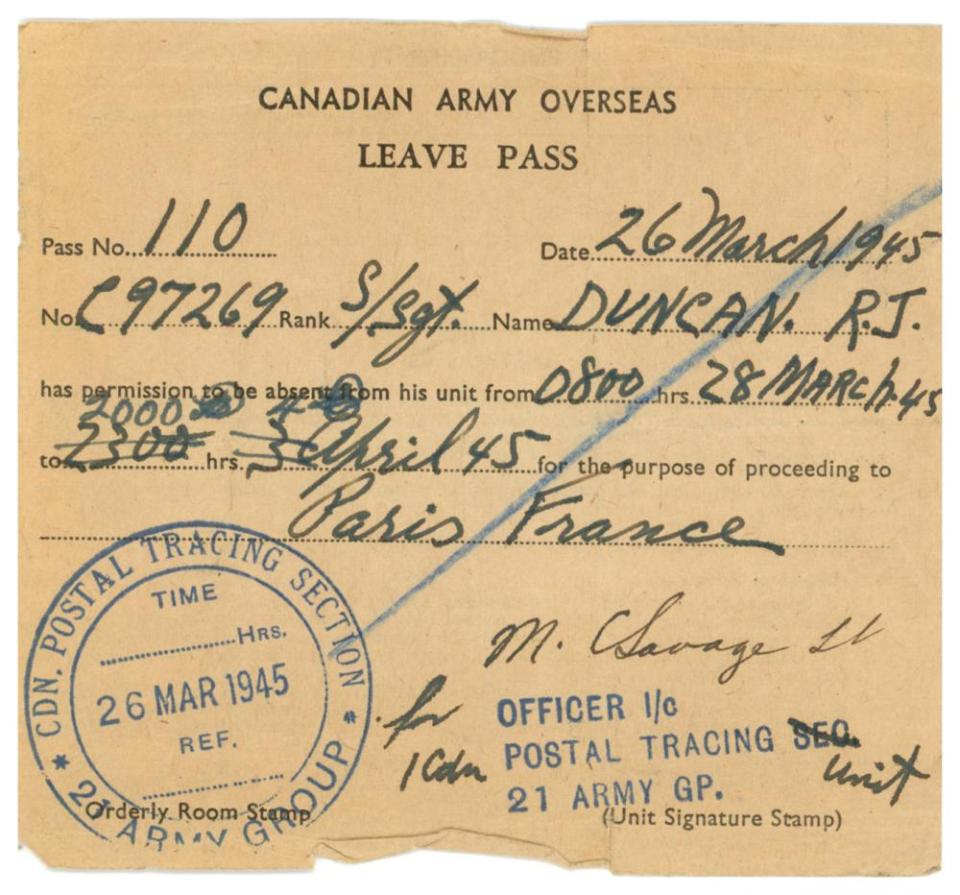 CANADIAN ARMY OVERSEAS
LEAVE PASS
Pass No. 110 Date 26 March 1945
No. C97269 Rank S/Sgt. Name DUNCAN. R.J.
has permission to be absent from his unit from 0800 hrs. 28 MARCH. 45
2000 4
to 2300 hrs. 3 April 45 for the purpose of proceeding to
Paris France
CDN. POSTAL TRACING SECTION
TIME
Hrs.
26 MAR 1945
REF.
* 21 ARMY GROUP *
Orderly Room Stamp
M. Savage Lt
for OFFICER I/c
1 Cdn POSTAL TRACING SEC. Unit
21 ARMY GP.
(Unit Signature Stamp)